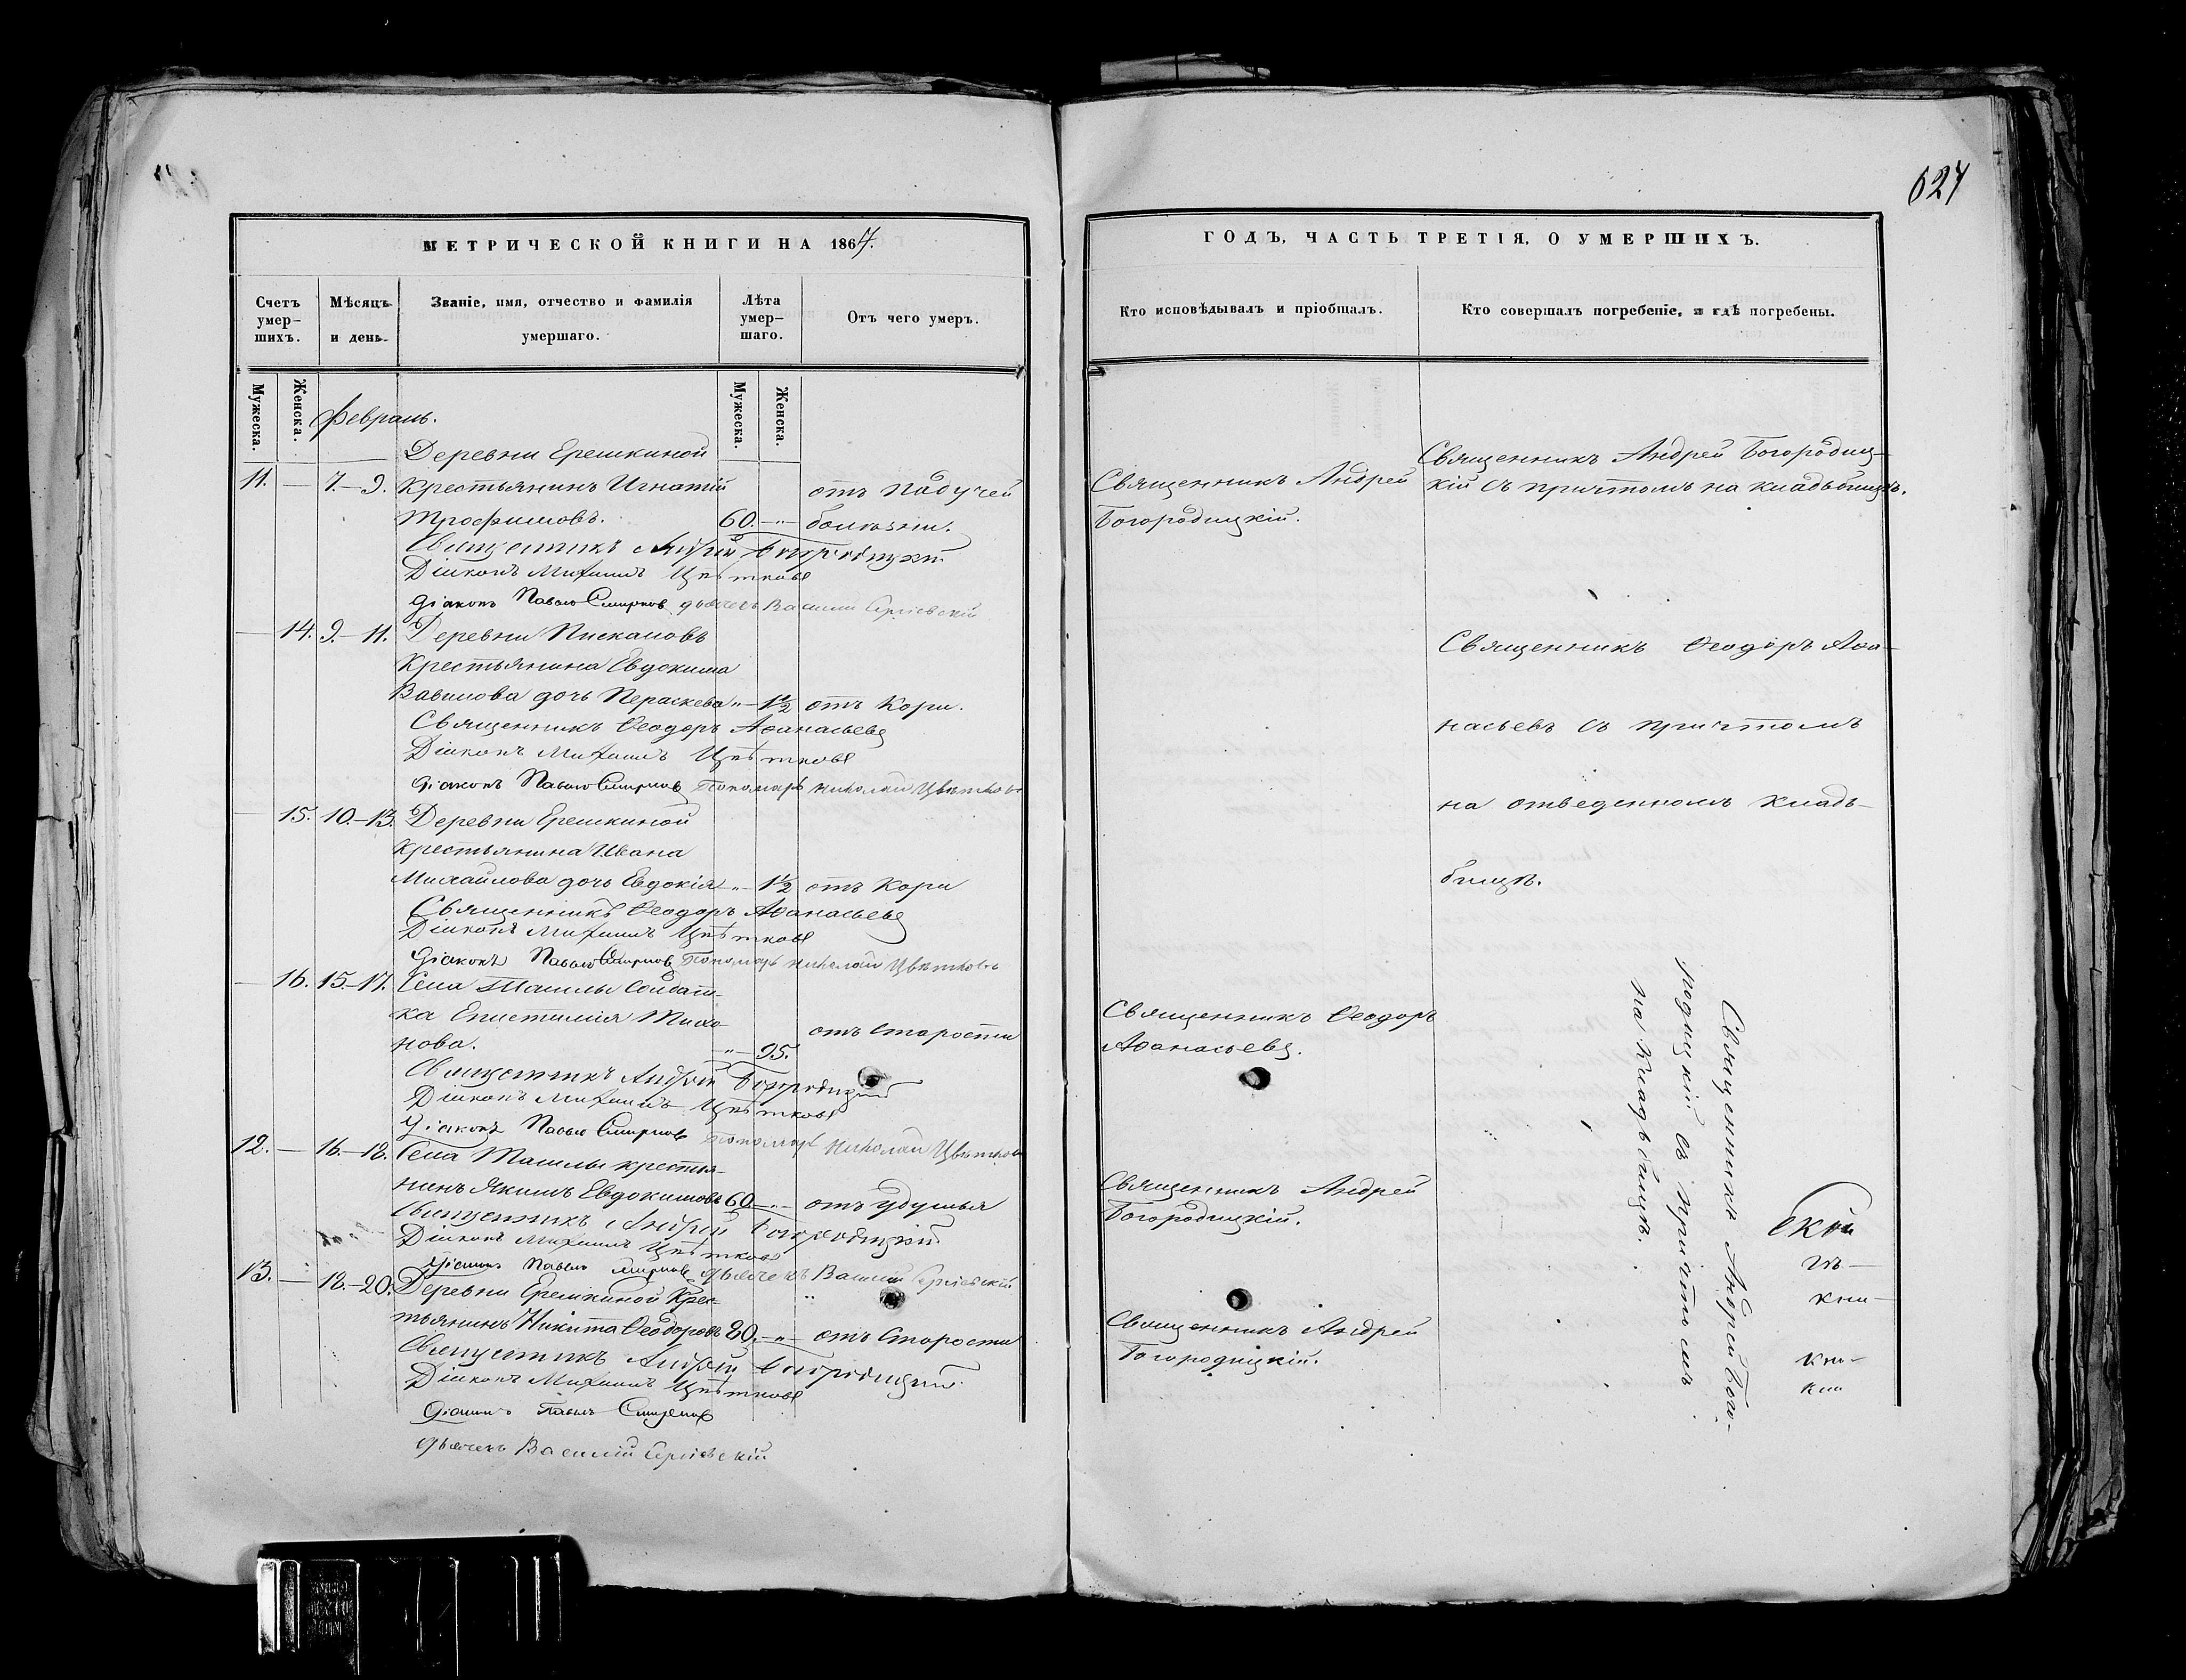 МЕТРИЧЕСКОЙ КНИГИ НА 1867.
Счетъ умер-шихъ.
Мѣсяцъ и день.
Званіе, имя, отчество и фамилія умершаго.
Лѣта умер-шаго.
Отъ чего умеръ.
Мужеска.
Женска.
Мужеска.
Женска.
Февраль.
Деревни Ерешкиной
11. — 7.–9. Крестьянинъ Игнатій отъ падучей
Трофимовъ. 60. — " — болѣзни.
Священникъ Андрей Богородицкій
Діаконъ Михаилъ Цвѣтковъ
Діаконъ Павелъ Смирновъ дьячекъ Василій Сергіевскій
— 14. 9.–11. Деревни Пискаловъ
Крестьянина Евдокима
Вавилова дочь Пераскева " — 1½ отъ Кори.
Священникъ Ѳеодоръ Аѳанасьевъ
Діаконъ Михаилъ Цвѣтковъ
Діаконъ Павелъ Смирновъ Пономарь Николай Цвѣтковъ
— 15. 10.–13. Деревни Ерешкиной
Крестьянина Ивана
Михайлова дочь Евдокія " — 1½ отъ Кори
Священникъ Ѳеодоръ Аѳанасьевъ
Діаконъ Михаилъ Цвѣтковъ
Діаконъ Павелъ Смирновъ Пономарь Николай Цвѣтковъ
— 16. 15.–17. Села Ташлы Солдат-
ка Епистимія Тихо- отъ Старости
нова. — " — 95.
Священникъ Андрей Богородицкій
Діаконъ Михаилъ Цвѣтковъ
Діаконъ Павелъ Смирновъ Пономарь Николай Цвѣтковъ
12. — 16.–18. Села Ташлы крестья-
нинъ Якимъ Евдокимовъ 60. — " — отъ удушья
Священникъ Андрей Богородицкій
Діаконъ Михаилъ Цвѣтковъ
Діаконъ Павелъ Смирновъ дьячекъ Василій Сергіевскій
13. — 18.–20. Деревни Ерешкиной Крес-
тьянинъ Никита Ѳеодоровъ 80. — " — отъ Старости
Священникъ Андрей Богородицкій
Діаконъ Михаилъ Цвѣтковъ
Діаконъ Павелъ Смирновъ
дьячекъ Василій Сергіевскій
624
ГОДЪ, ЧАСТЬ ТРЕТІЯ, О УМЕРШИХЪ.
Кто исповѣдывалъ и пріобщалъ.
Кто совершалъ погребеніе, и гдѣ погребены.
Священникъ Андрей
Богородицкій.
Священникъ Андрей Богородиц-
кій съ причтомъ на кладьбищѣ.
Священникъ Ѳеодоръ Аѳа-
насьевъ съ причтомъ
на отведенномъ кладь-
бищѣ.
Священникъ Ѳеодоръ
Аѳанасьевъ.
Священникъ Андрей
Богородицкій.
Священникъ Андрей
Богородицкій.
Священникъ Андрей Бого-
родицкій съ причтомъ
на Кладьбищѣ.